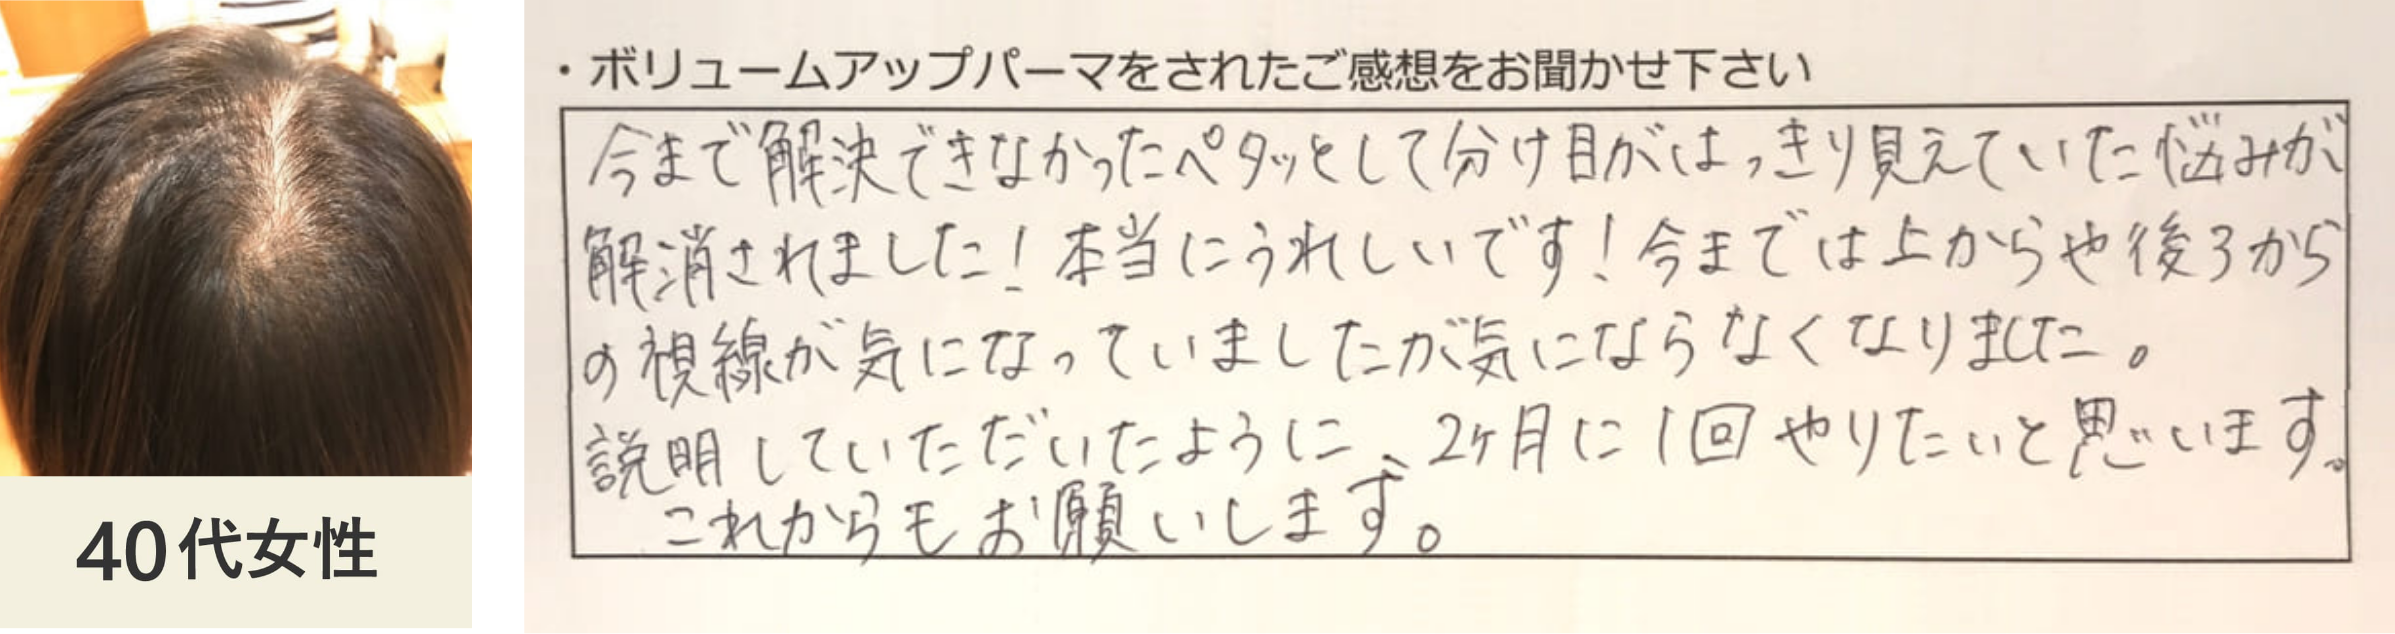 40代女性
・ボリュームアップパーマをされたご感想をお聞かせ下さい
今まで解決できなかったペタッとして分け目がはっきり見えていた悩みが
解消されました！本当にうれしいです！今までは上からや後ろから
の視線が気になっていましたが気にならなくなりました。
説明していただいたように、2ヶ月に1回やりたいと思います。
これからもお願いします。